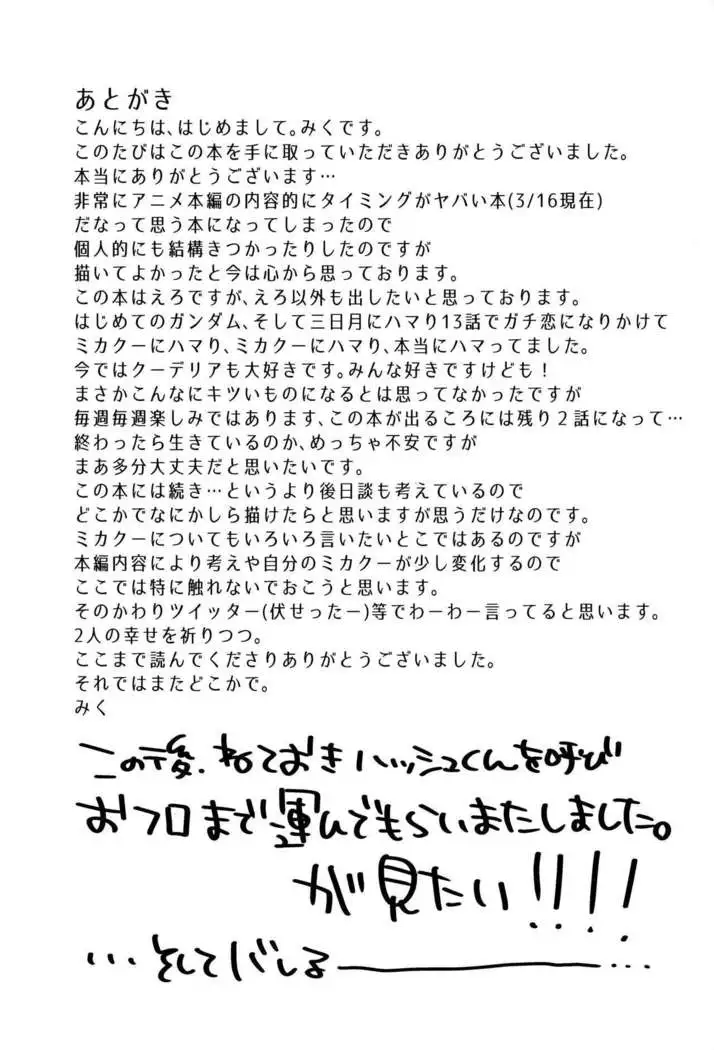 あとがき
こんにちは、はじめまして。みくです。
このたびはこの本を手に取っていただきありがとうございました。
本当にありがとうございます…
非常にアニメ本編の内容的にタイミングがヤバい本(3/16現在)
だなって思う本になってしまったので
個人的にも結構きつかったりしたのですが
描いてよかったと今は心から思っております。
この本はえろですが、えろ以外も出したいと思っております。
はじめてのガンダム、そして三日月にハマり13話でガチ恋になりかけて
ミカクーにハマり、ミカクーにハマり、本当にハマってました。
今ではクーデリアも大好きです。みんな好きですけども！
まさかこんなにキツいものになるとは思ってなかったですが
毎週毎週楽しみではあります、この本が出るころには残り２話になって…
終わったら生きているのか、めっちゃ不安ですが
まあ多分大丈夫だと思いたいです。
この本には続き…というより後日談も考えているので
どこかでなにかしら描けたらと思いますが思うだけなのです。
ミカクーについてもいろいろ言いたいとこではあるのですが
本編内容により考えや自分のミカクーが少し変化するので
ここでは特に触れないでおこうと思います。
そのかわりツイッター(伏せったー)等でわーわー言ってると思います。
2人の幸せを祈りつつ。
ここまで読んでくださりありがとうございました。
それではまたどこかで。
みく
この後、ねておきハッシュくんを呼び
おフロまで運んでもらいまたしました。
が見たい!!!!
...そしてバレる―――...